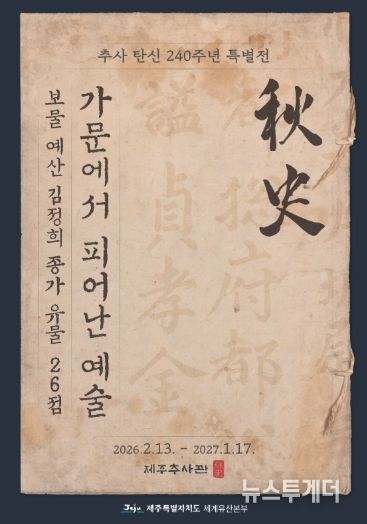 추사 탄신 240주년 특별전
秋史
가문에서 피어난 예술
보물 예산 김정희 종가 유물 26점
謚貞孝金
府都
2026.2.13. - 2027.1.17.
제주추사관
Jeju 제주특별자치도 세계유산본부
뉴스투게더